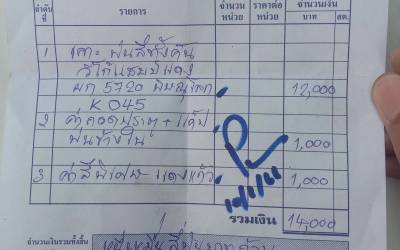 ลำดับที่ รายการ จำนวนหน่วย ราคาต่อหน่วย จำนวนเงิน
บาท สต.
1 เคาะ พ่นสีทั้งคัน
วีโก้แชมป์แดง
ผก 5720 พิษณุโลก 12,000
K 045
2 ค่าถอดประตู + แค็ป
พ่นข้างใน 1,000
3 ค่าสีพิเศษ แดงแก้ว 1,000
รวมเงิน 14,000
จำนวนเงินรวมทั้งสิ้น หนึ่งหมื่นสี่พันบาทถ้วน